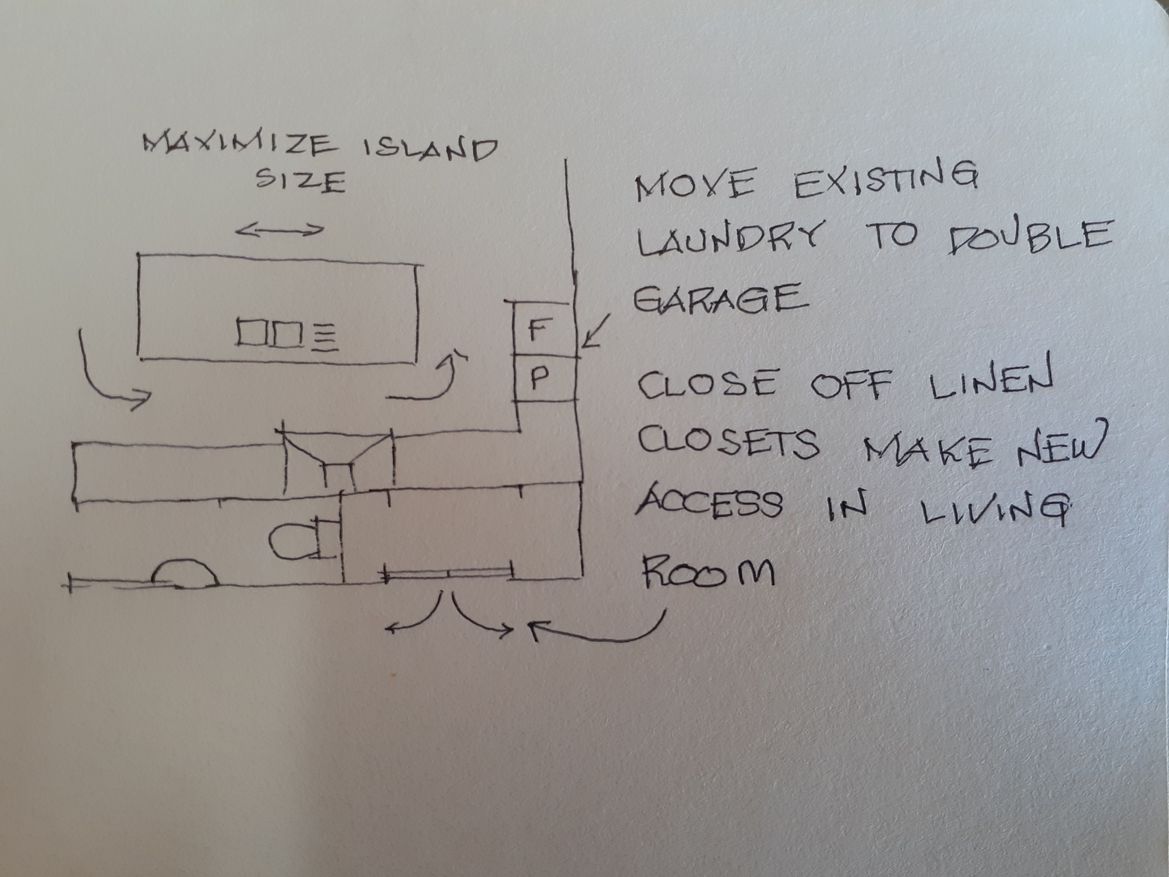 MAXIMIZE ISLAND
SIZE
MOVE EXISTING
LAUNDRY TO DOUBLE
GARAGE
F
P
CLOSE OFF LINEN
CLOSETS MAKE NEW
ACCESS IN LIVING
ROOM